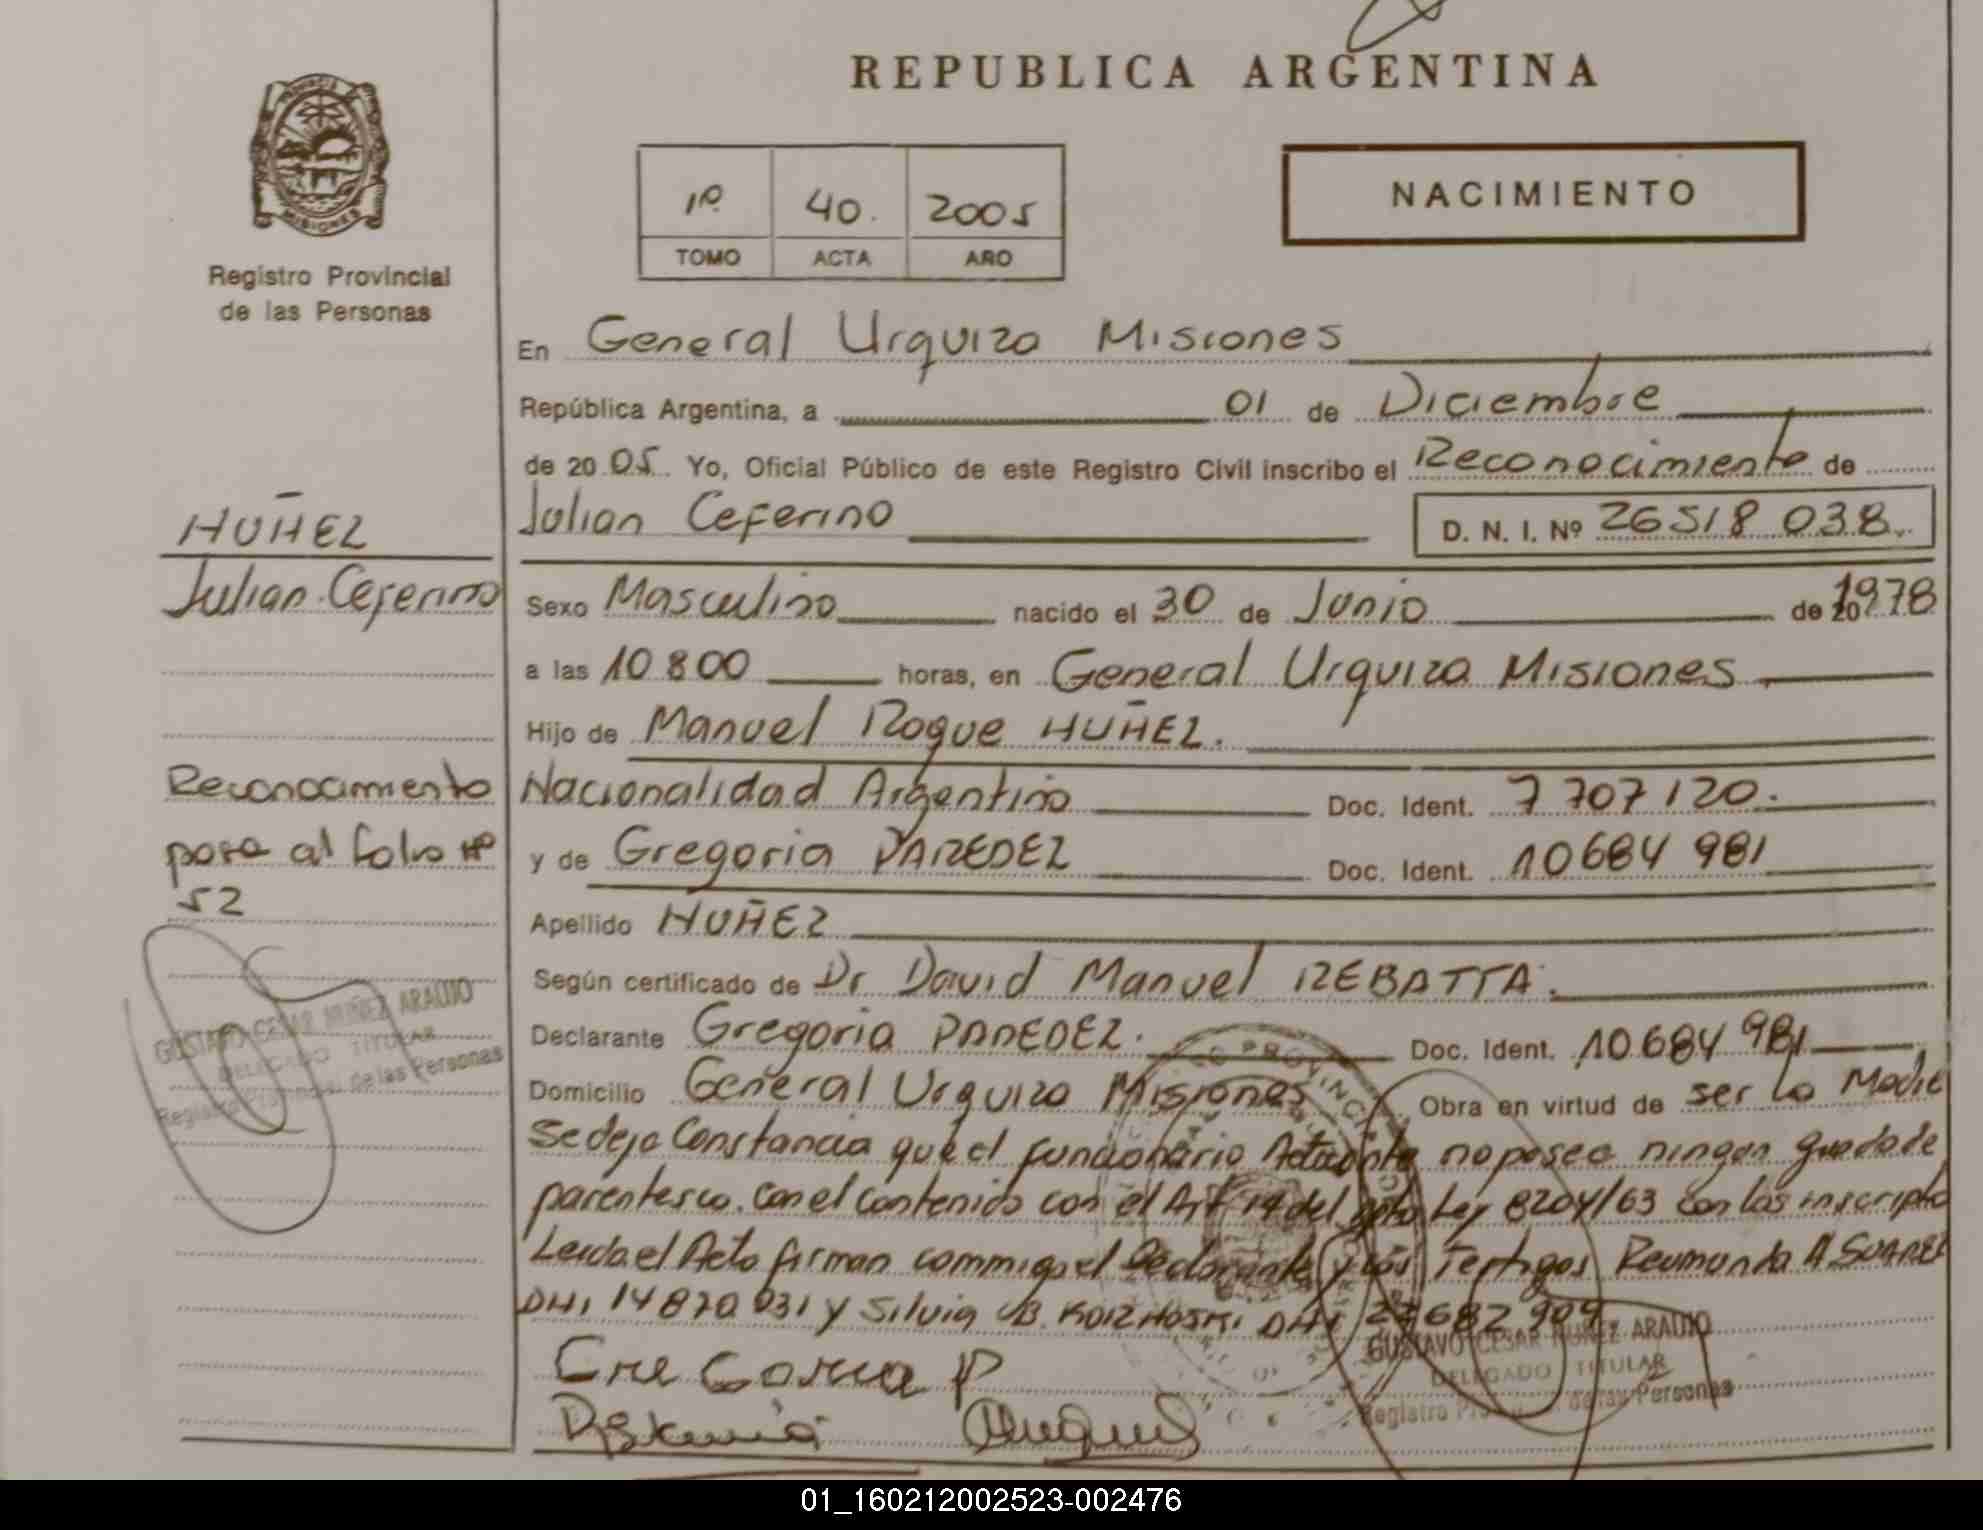 REPUBLICA ARGENTINA
PROVINCIA DE MISIONES
Registro Provincial
de las Personas
1º 40. 2005
TOMO ACTA AÑO
NACIMIENTO
En General Urquiza Misiones
República Argentina, a 01 de Diciembre
de 20 05 Yo, Oficial Público de este Registro Civil inscribo el Reconocimiento de
Julian Ceferino D. N. I. Nº 26518 038.
Sexo Masculino nacido el 30 de Junio de 20 1978
a las 10 800 horas, en General Urquiza Misiones
Hijo de Manuel Roque NUÑEZ.
Nacionalidad Argentino Doc. Ident. 7 707 120.
y de Gregoria PAREDEZ Doc. Ident. 10684 981
Apellido NUÑEZ
Según certificado de Dr David Manuel REBATTA.
Declarante Gregoria PAREDEZ. Doc. Ident. 10684 981
Domicilio General Urquiza Misiones Obra en virtud de ser la Madre
Se deja Constancia que el funcionario Actuante no posee ningun grado de
parentesco. Con el Contenido con el Art 14 del Dpto Ley 8204/63 con los inscripto
Leida el Acto firman commigo el Declarante y los Testigos Reumunda A. SUAREZ
DNI 14870 031 y Silvia B. DNI 27682 909.
GUSTAVO CESAR NUÑEZ ARAUJO
DELEGADO TITULAR
Registro Provincial de las Personas
NUÑEZ
Julian Ceferino
Reconocimiento
pasa al folio Nº
52
GUSTAVO CESAR NUÑEZ ARAUJO
DELEGADO TITULAR
Registro Provincial de las Personas
01_160212002523-002476